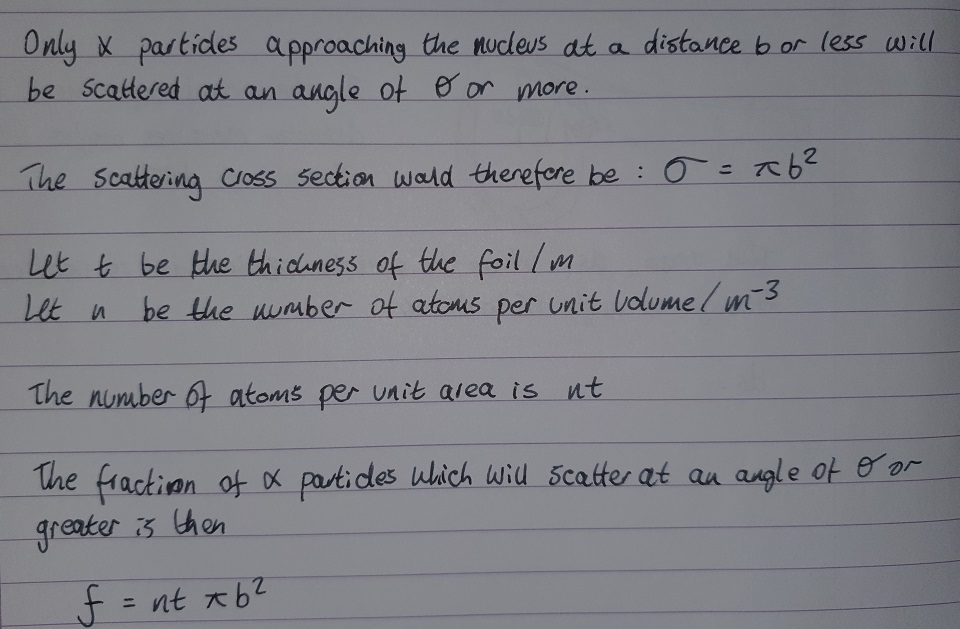 Only α particles approaching the nucleus at a distance b or less will
be scattered at an angle of θ or more.
The scattering cross section would therefore be : σ = πb²
Let t be the thickness of the foil / m
Let n be the number of atoms per unit volume / m⁻³
The number of atoms per unit area is nt
The fraction of α particles which will scatter at an angle of θ or
greater is then
f = nt πb²